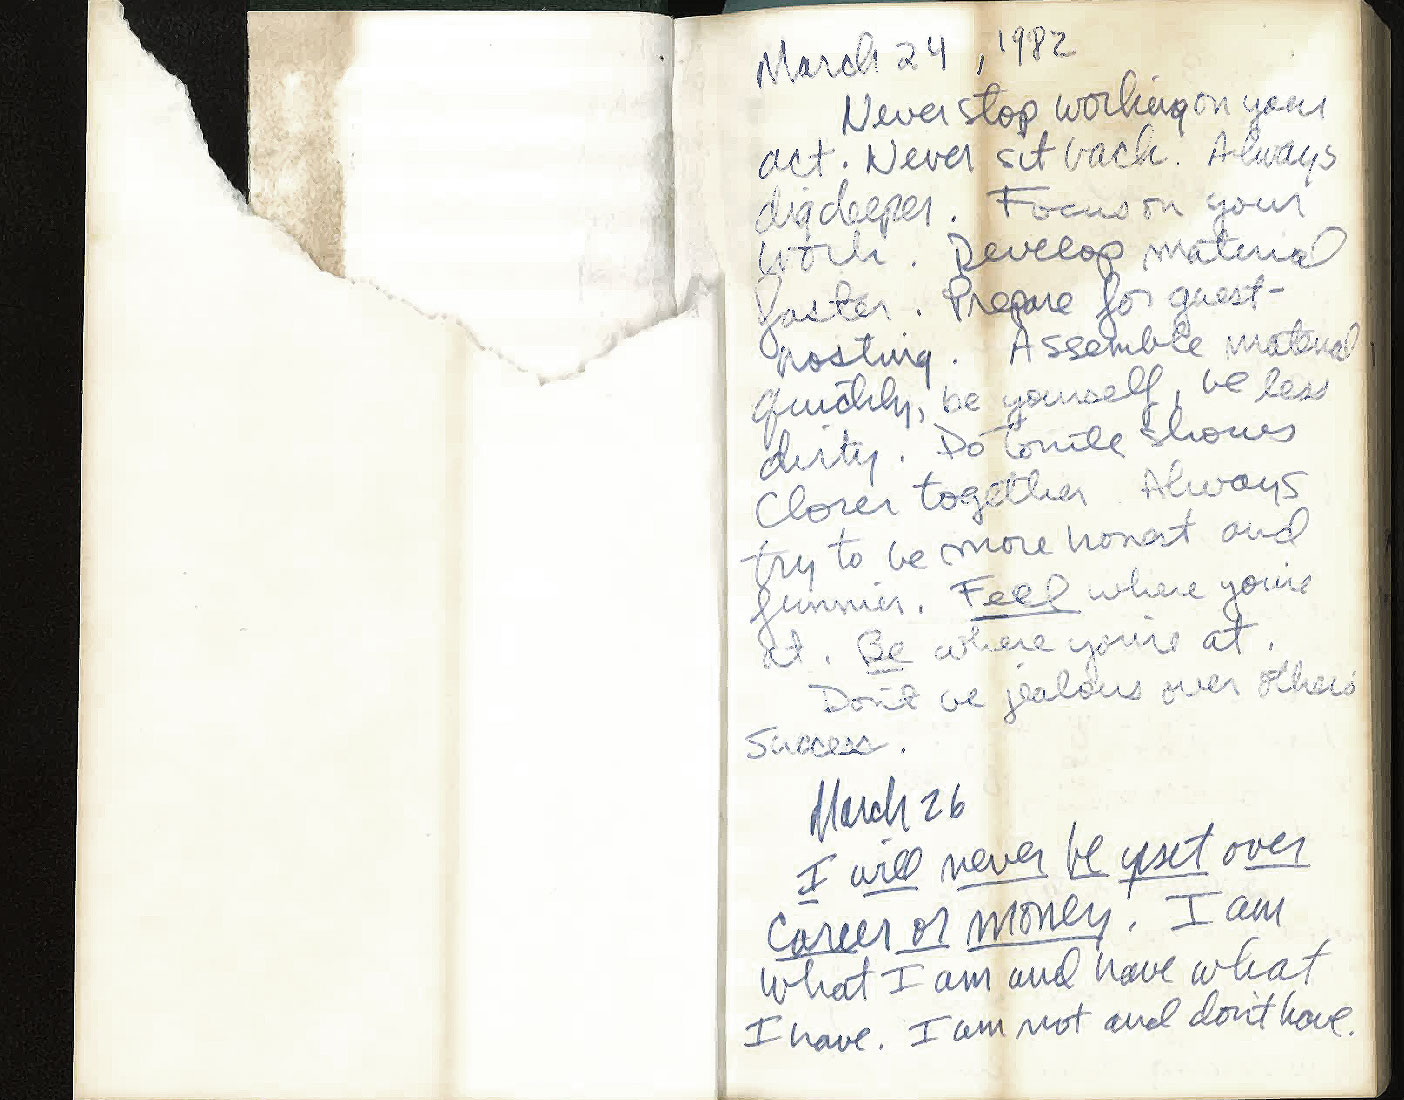 March 24, 1982
Never stop working on your
act. Never sit back. Always
dig deeper. Focus on your
work. Develop material
faster. Prepare for guest-
hosting. Assemble material
quickly, be yourself, be less
dirty. Do tonite shows
closer together. Always
try to be more honest and
funnier. Feel where you're
at. Be where you're at.
Don't be jealous over others
success.
March 26
I will never be upset over
career or money. I am
what I am and have what
I have. I am not and don't have.